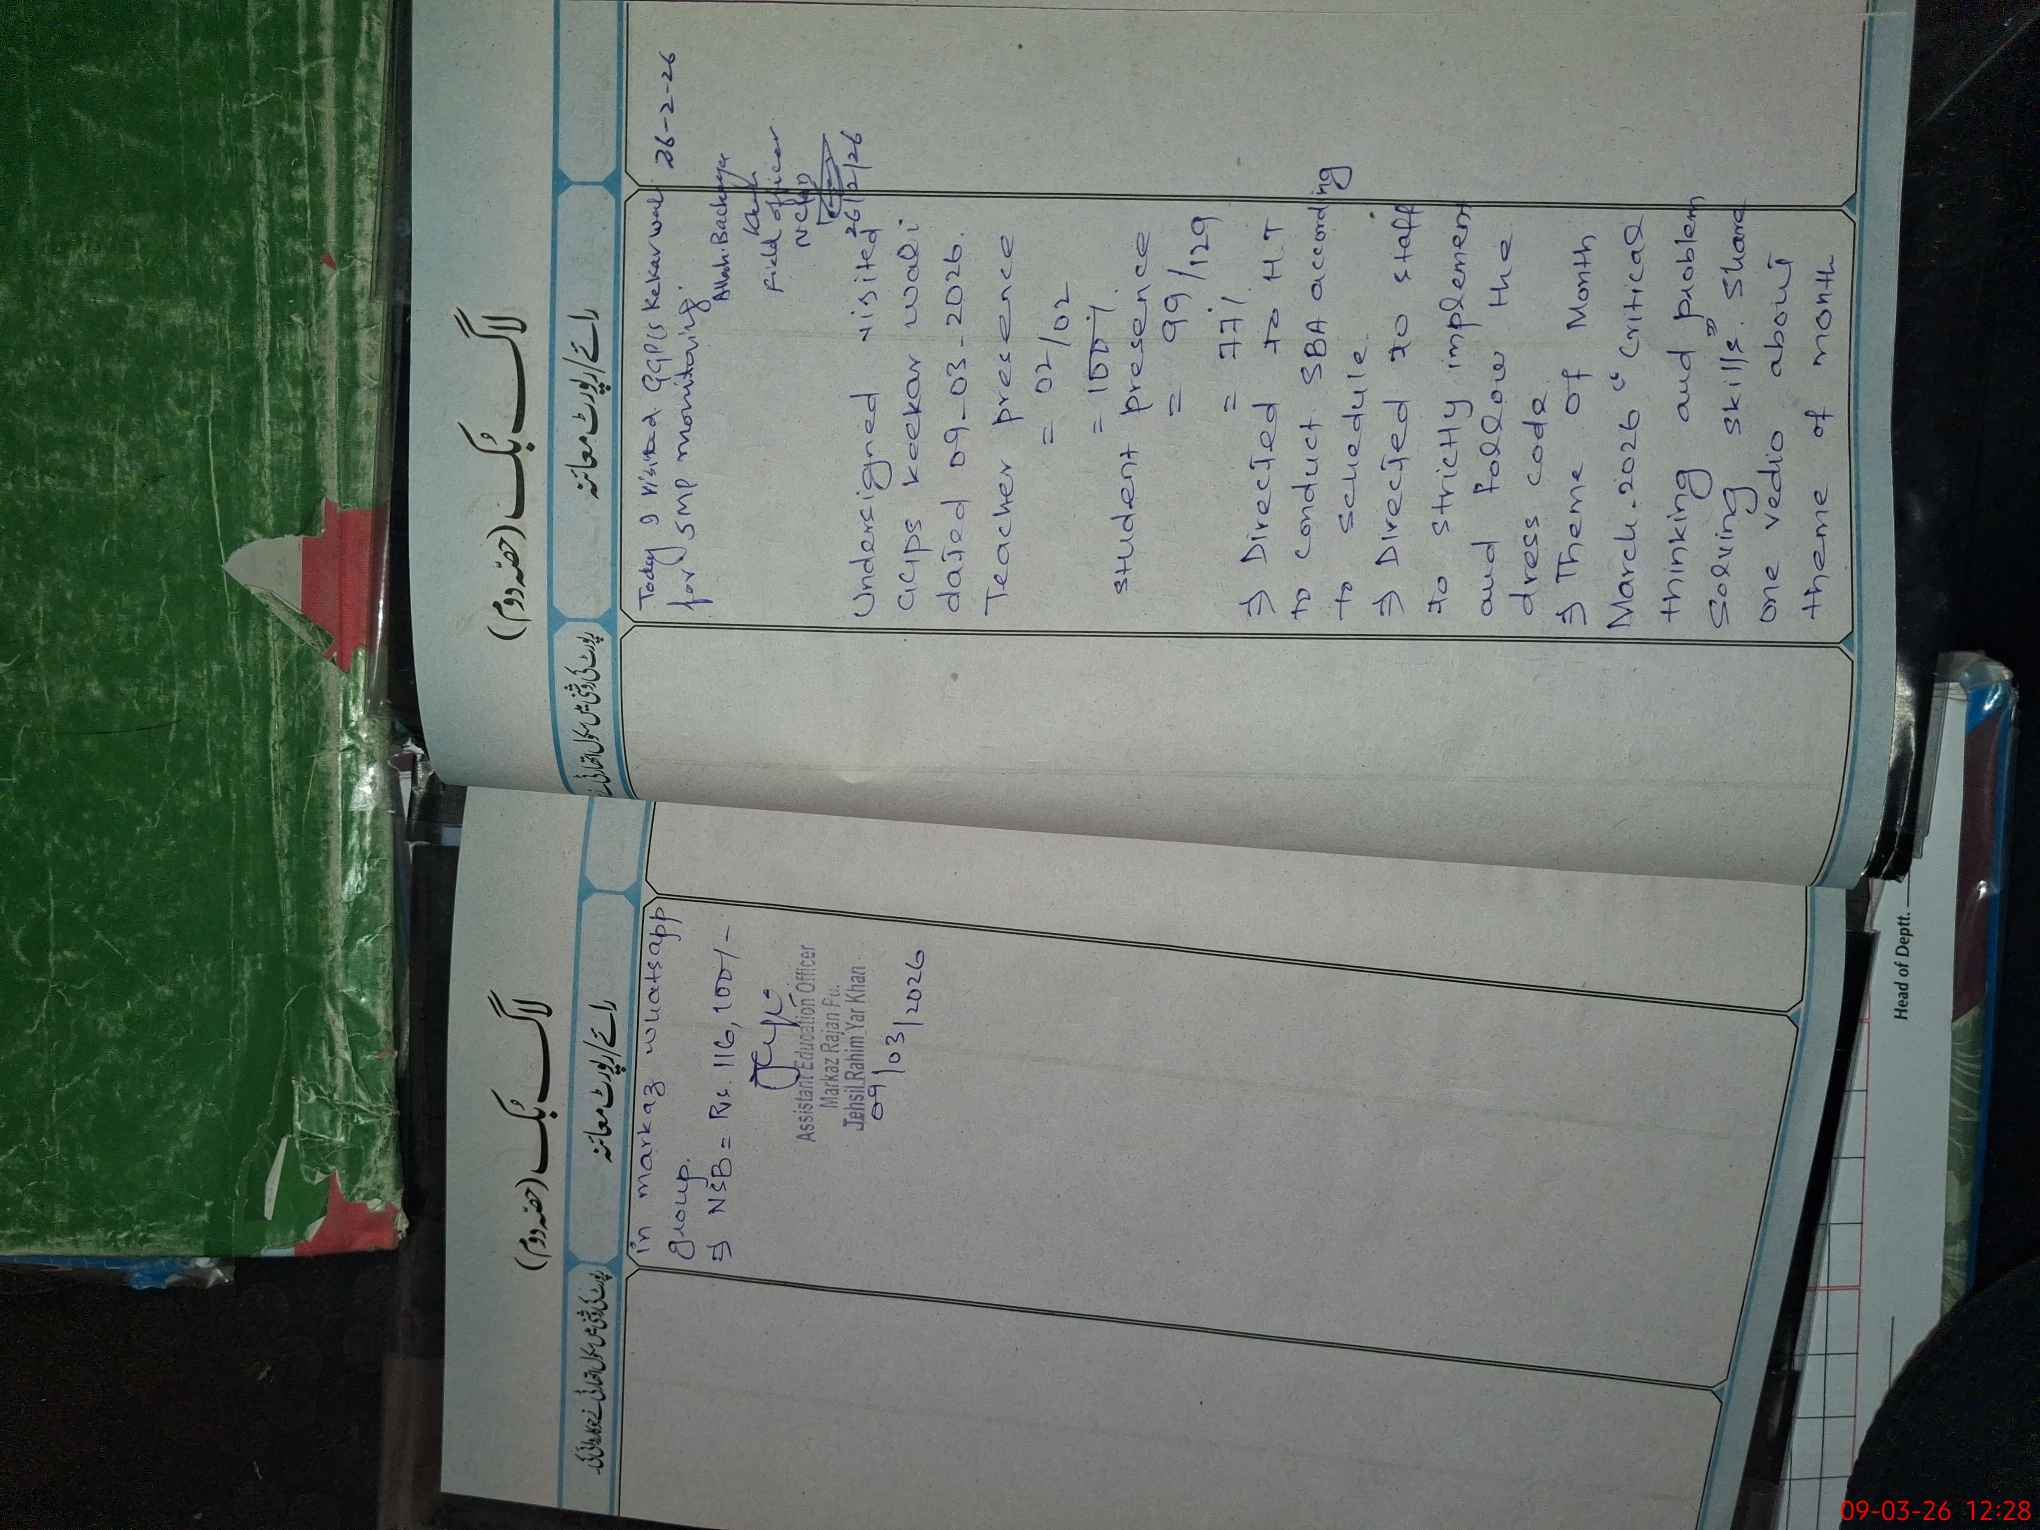 لاگ بُک (حصّہ دوم)
رائے/رپورٹ معائنہ
Today I visited GGPS Kekarwali 26-2-26
for SMP monitoring.
Field officer
NCHD
26/2/26
Undersigned visited
GGPS keekar wali
dated 09-03-2026.
Teacher presence
= 02/02
= 100%.
student presence
= 99/129
= 77%
⇒ Directed to H.T
to conduct SBA according
to schedule.
⇒ Directed to staff
to strictly implement
and follow the
dress code.
⇒ Theme of Month
March.2026 "Critical
thinking and problem
solving skills". Share
one vedio about
theme of month
لاگ بُک (حصّہ دوم)
رائے/رپورٹ معائنہ
in markaz whatsapp
group.
⇒ NSB = Rs. 116,100/-
Assistant Education Officer
Markaz Rajan Pu.
Tehsil Rahim Yar Khan
09/03/2026
Head of Deptt.
09-03-26 12:28